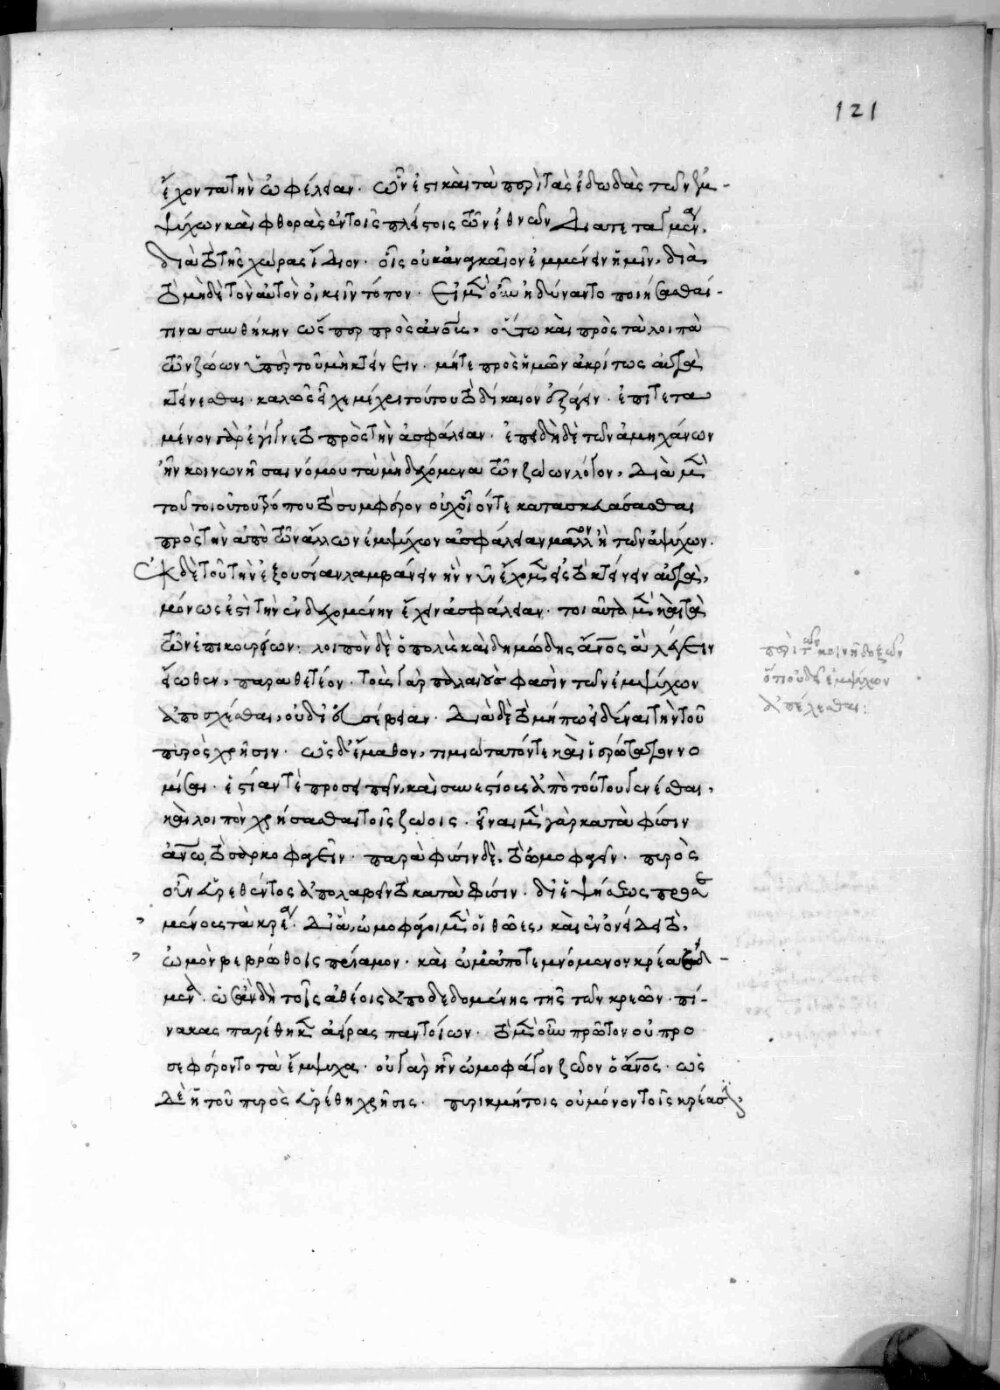 121
ἔχοντα τὴν ὠφέλειαν. ὧν ἐστι καὶ τὰ περὶ τὰς ἐδωδὰς τῶν ἐμ-
ψύχων καὶ φθορὰς ἐν τοῖς πλείστοις τῶν ἐθνῶν διατεταγμένα,
διὰ τὸ τῆς χώρας ἴδιον. οἷς οὐκ ἀναγκαῖον ἐμμένειν ἡμῖν, διὰ
τὸ μηδὲ τὸν αὐτὸν οἰκεῖν τόπον. Εἰ μὲν οὖν ἠδύναντο ποιήσασθαι
τινα συνθήκην ὥσπερ πρὸς ἀνθρώπους, οὕτω καὶ πρὸς τὰ λοιπὰ
τῶν ζώων ὑπὲρ τοῦ μὴ κτείνειν. μήτε πρὸς ἡμῶν ἀκρίτως αὐτὰ
κτείνεσθαι. καλῶς εἶχε μέχρι τούτου τὸ δίκαιον ἐξάγειν. ἐπιτετα
μένον γὰρ ἐγίγνετο πρὸς τὴν ἀσφάλειαν. ἐπειδὴ δὲ τῶν ἀμηχάνων
ἦν κοινωνῆσαι νόμου τὰ μὴ δεχόμενα τῶν ζώων λόγον, διὰ μὲν
τοῦ τοιούτου τρόπου τὸ συμφέρον οὐχ οἷόν τε κατασκευάσασθαι
πρὸς τὴν ἀπὸ τῶν ἄλλων ἐμψύχων ἀσφάλειαν μᾶλλον ἢ τῶν ἀψύχων.
Ἐκ δὲ τοῦ τὴν ἐξουσίαν λαμβάνειν ἣν νῦν ἔχομεν εἰς τὸ κτείνειν αὐτὰ,
μόνως ἐστὶ τὴν ἐνδεχομένην ἔχειν ἀσφάλειαν. τοιαῦτα μὲν καὶ τὰ
τῶν ἐπικουρείων. λοιπὸν δὲ ὁ πολὺς καὶ δημώδης ἄνθρωπος ἃ λέγειν
εἴωθεν, παραθετέον. τοὺς γὰρ παλαιούς φασὶν τῶν ἐμψύχων
ἀποσχέσθαι, οὐ δι' εὐσέβειαν. διὰ δὲ τὸ μήπω εἰδέναι τὴν τοῦ
πυρὸς χρῆσιν. ὡς δ' ἔμαθον, τιμιώτατόν τε καὶ ἱερώτατον νο
μίσαι. ἑστίαν τὲ προσειπεῖν, καὶ συνεστίους ἀπὸ τούτου γενέσθαι,
καὶ λοιπὸν χρήσασθαι τοῖς ζώοις. εἶναι μὲν γὰρ κατὰ φύσιν
ἀνθρώπω, τὸ σαρκοφαγεῖν. παρὰ φύσιν δὲ, τὸ ὠμοφαγεῖν. πυρὸς
οὖν εὑρεθέντος ἀπολαβεῖν τὸ κατὰ φύσιν. δι' ἑψήσεως προσε
μένους τὰ κρέα. διὸ, ὠμοφάγοι μὲν οἱ θῶες, καὶ ἐν ὀνείδει τὸ,
ὠμὸν βεβρώθοις πρίαμον. καὶ ὠμ' ἀποτεμνόμενον κρέα ἔδ-
μεναι. ὡσανδὴ τοῖς ἀθέοις ἀποδεδομένης τῆς τῶν κρεῶν. πί-
νακας παρέθηκεν ἀείρας παντοίων. τὸ μὲν οὖν πρῶτον οὐ προ
σεφέροντο τὰ ἔμψυχα. οὐ γὰρ ἦν ὠμοφάγον ζῶον ὁ ἄνθρωπος. ὡς
δὲ ἡ τοῦ πυρὸς εὑρέθη χρῆσις. πυρικμήτοις οὐ μόνον τοῖς κρέασιν,
περὶ τῶν κοινῇ δοξῶν
ὅπου δεῖ ἐμψύχων
ἀπέχεσθαι: